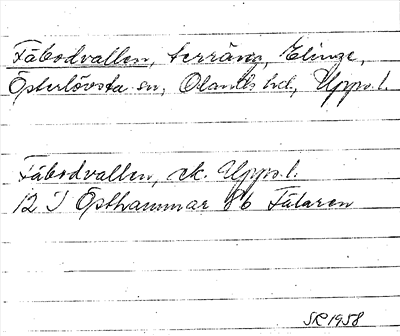 Fäbodvallen, terräng, Elinge,
Österlövsta sn, Olands hd, Upps. l.
Fäbodvallen, ek. Upps. l.
12 I Östhammar 8b Fälaren
SR 1958